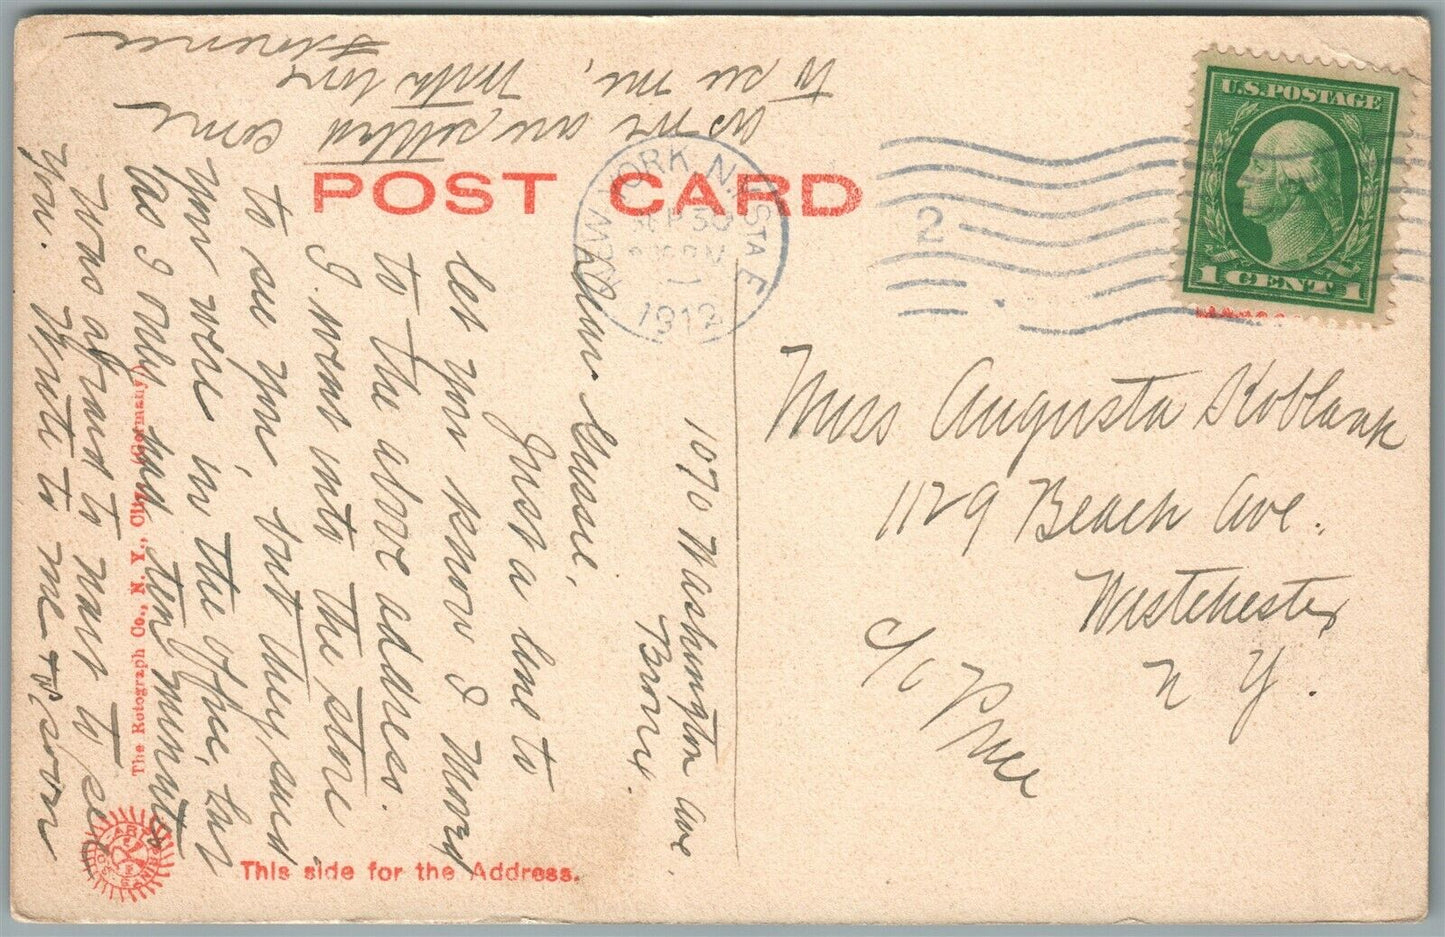 POST CARD
NEW YORK, N.Y. STA E
SEP 30
PM
1912
2
U.S. POSTAGE
1 CENT 1
Miss Augusta Koblank
1129 Beach Ave.
Westchester
N Y.
c/o
1070 Washington Ave.
Bronx
Dear Gussie,
Just a line to
let you know I moved
to the above address.
I went into the store
to see you, but they said
you were in the office, but
as I only had ten minutes
I was afraid to wait to see
you. Write to me & soon
as we are settled come
to see me, With love
Florence
The Rotograph Co., N. Y., City. (Germany)
This side for the Address.